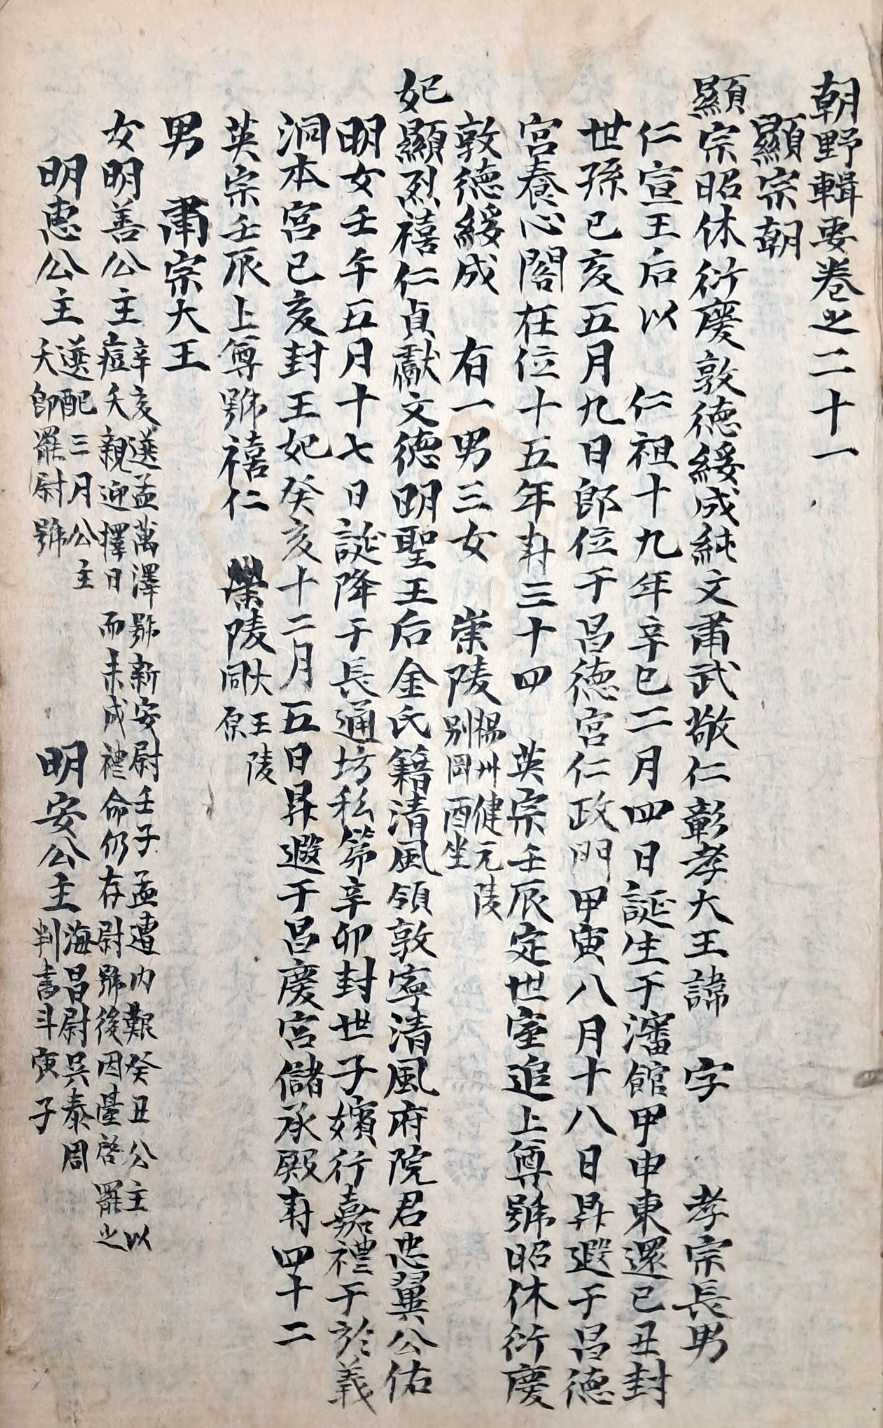 朝野輯要卷之二十一
顯宗朝
顯宗昭休衍慶敦德綏成純文肅武敬仁彰孝大王諱 字 孝宗長男
仁宣王后以 仁祖十九年辛巳二月四日誕生于瀋館甲申東還己丑封
世孫己亥五月九日郎位于昌德宮仁政門甲寅八月十八日昇遐于昌德
宮養心閣在位十五年壽三十四 英宗壬辰定世室追上尊號昭休衍慶
敦德綏成 有一男三女 崇陵
楊州健元陵
別岡酉坐
妃顯烈禧仁貞獻文德明聖王后金氏籍清風領敦寧清風府院君忠翼公佑
明女壬午五月十七日誕降于長通坊私第辛卯封世子嬪行嘉禮于於義
洞本宮己亥封王妃癸亥十二月五日昇遐于昌慶宮儲承殿壽四十二
英宗壬辰上尊號禧仁 崇陵
大王陵
同原
男 肅宗大王
女明善公主
辛亥選孟萬澤號新安尉壬子孟遭內艱癸丑公主以
痘夭親迎擇日而未成禮命仍存尉號後因臺啓罷之
明惠公主
選配三月公主
夭卽罷尉號
明安公主
海昌尉吳泰周
判書斗寅子